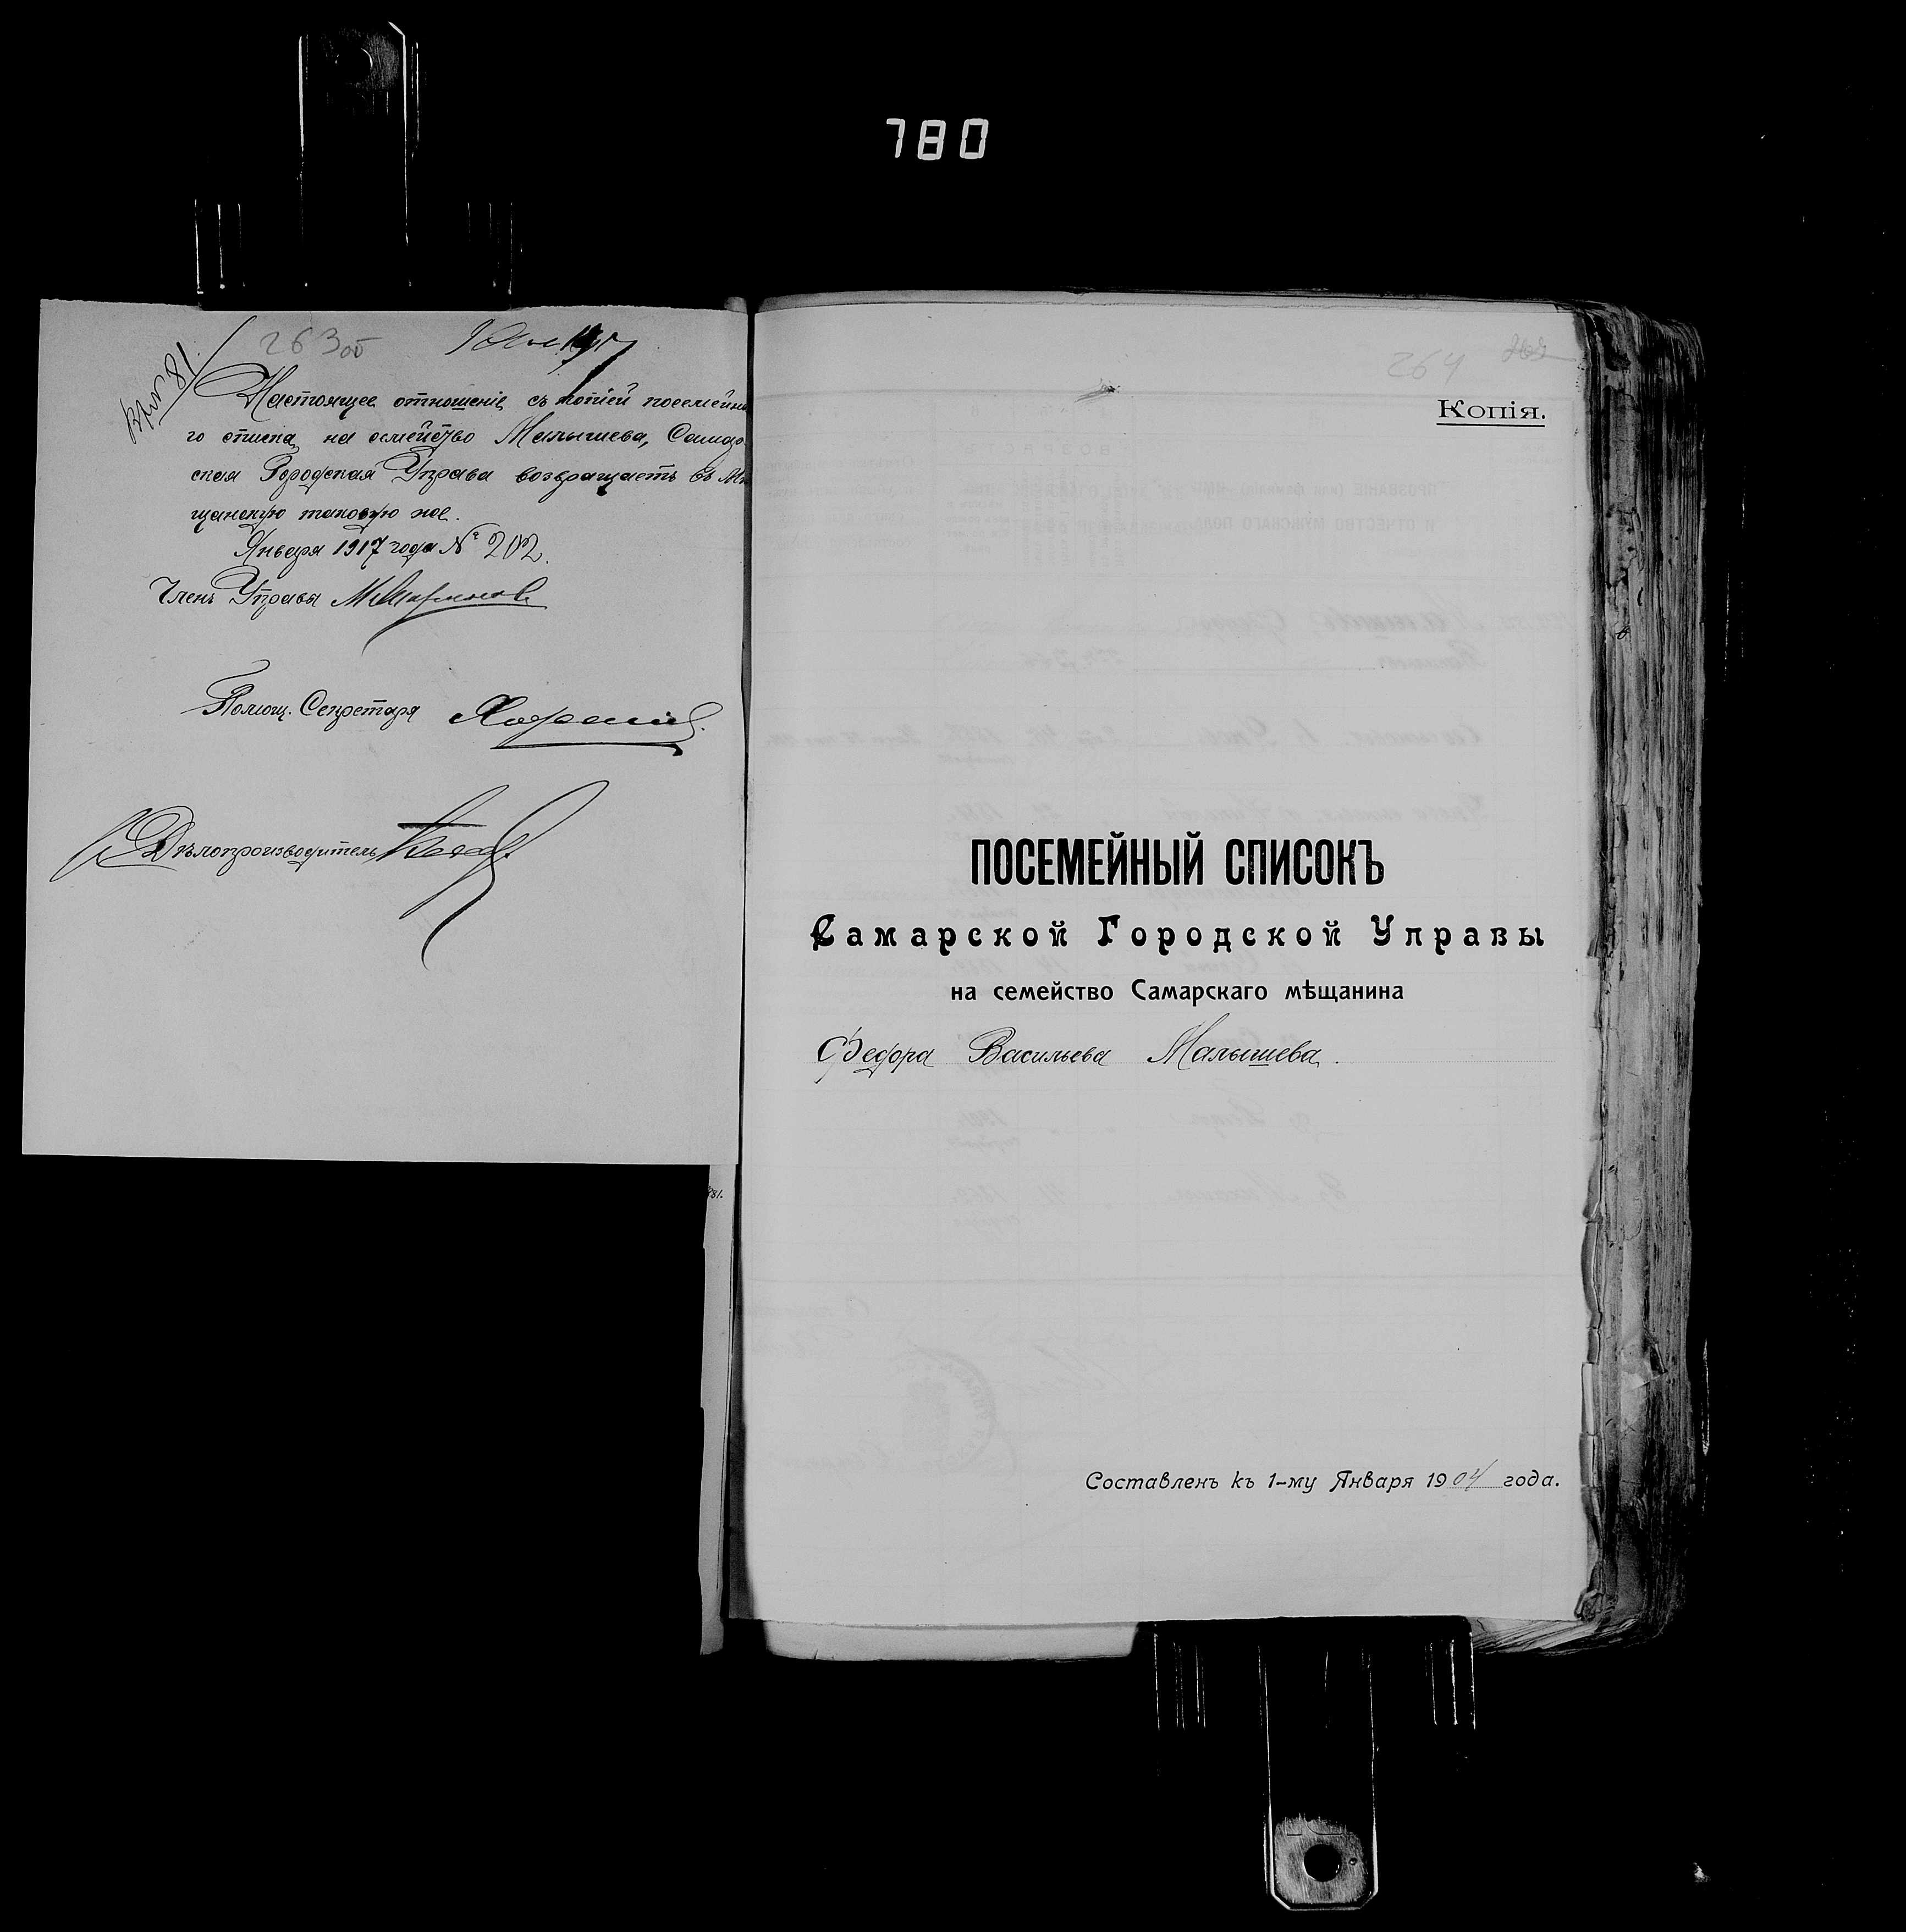 780
263 об
Вх № 81
Настоящее отношеніе съ копіей посемейна
го списка на семейство Малышева, Самар
ская Городская Управа возвращаетъ въ Мѣ
щанскую таковую же.
Января 1917 года № 202.
Членъ Управы
Помощ. Секретаря
Дѣлопроизводитель
264
Копія.
ПОСЕМЕЙНЫЙ СПИСОКЪ
Самарской Городской Управы
на семейство Самарскаго мѣщанина
Федора Васильева Малышева.
Составленъ къ 1-му Января 1904 года.